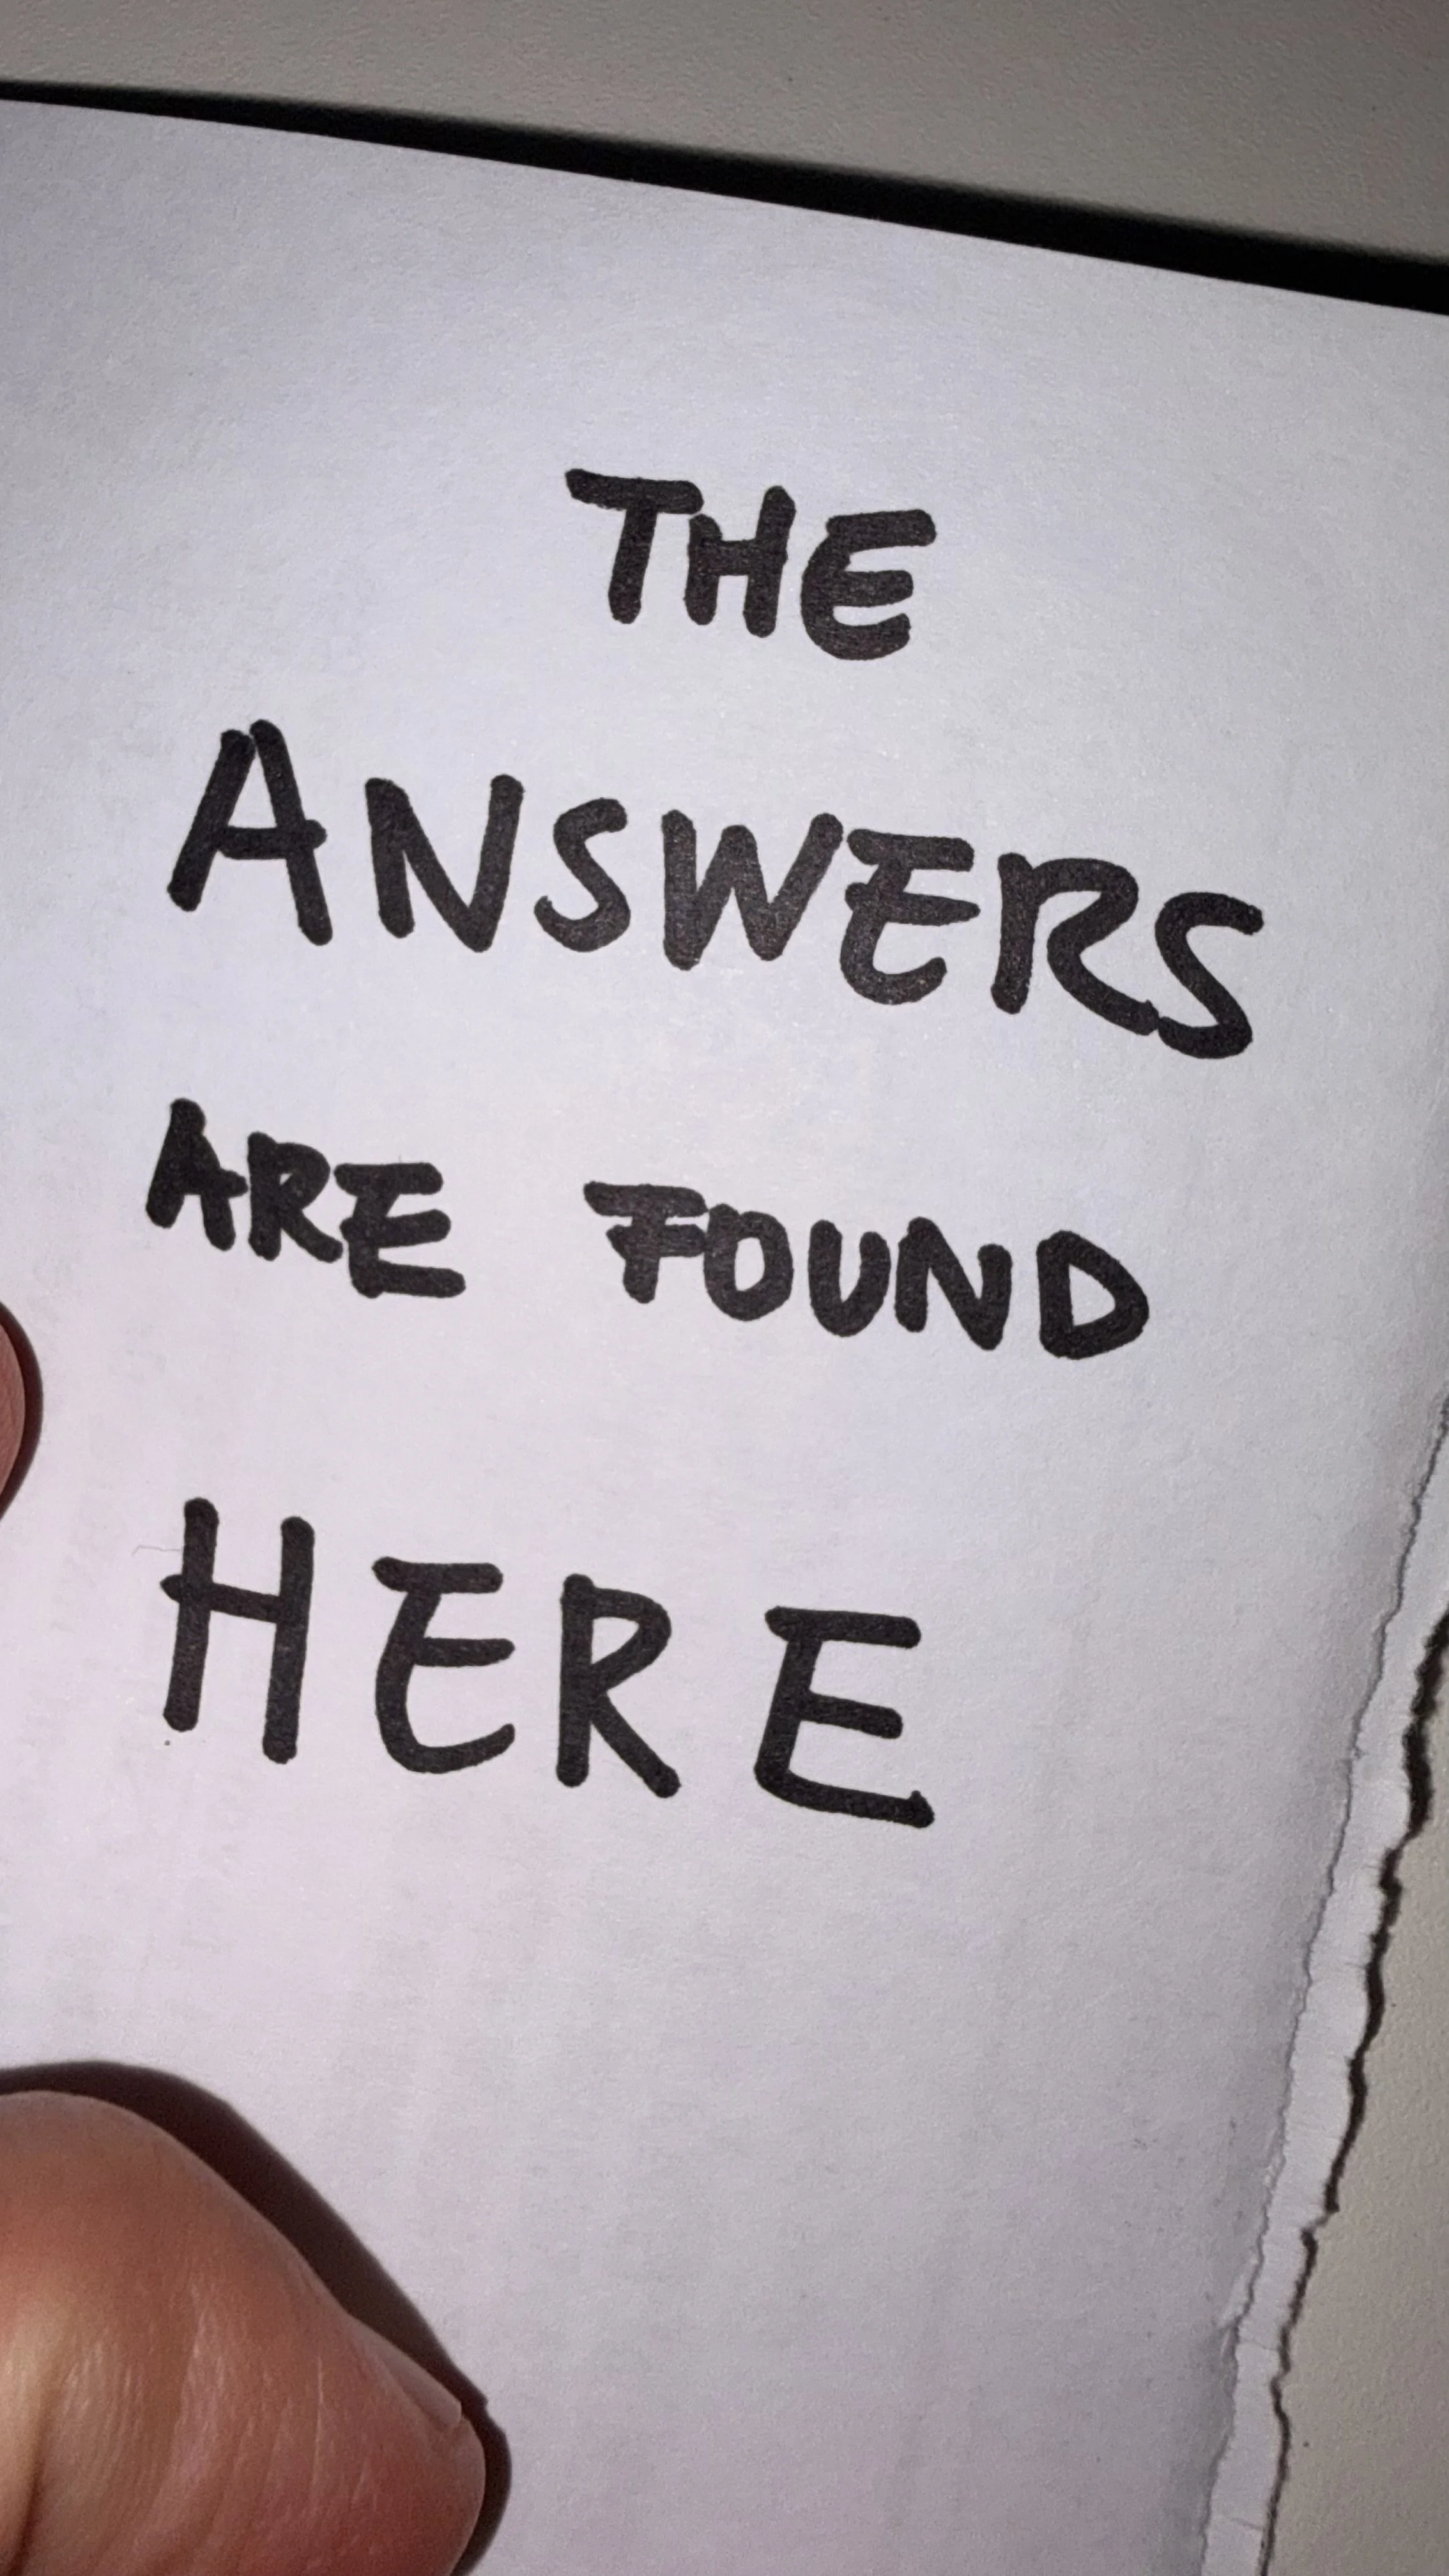 THE
ANSWERS
ARE FOUND
HERE